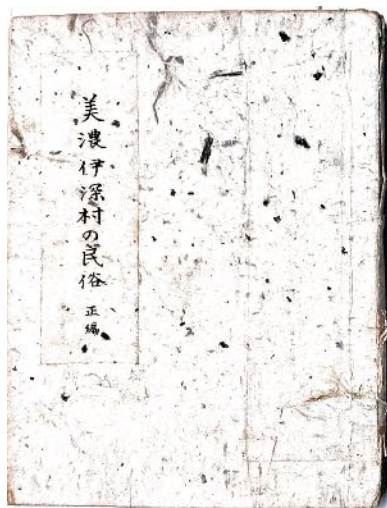 美濃伊深村の民俗 正編